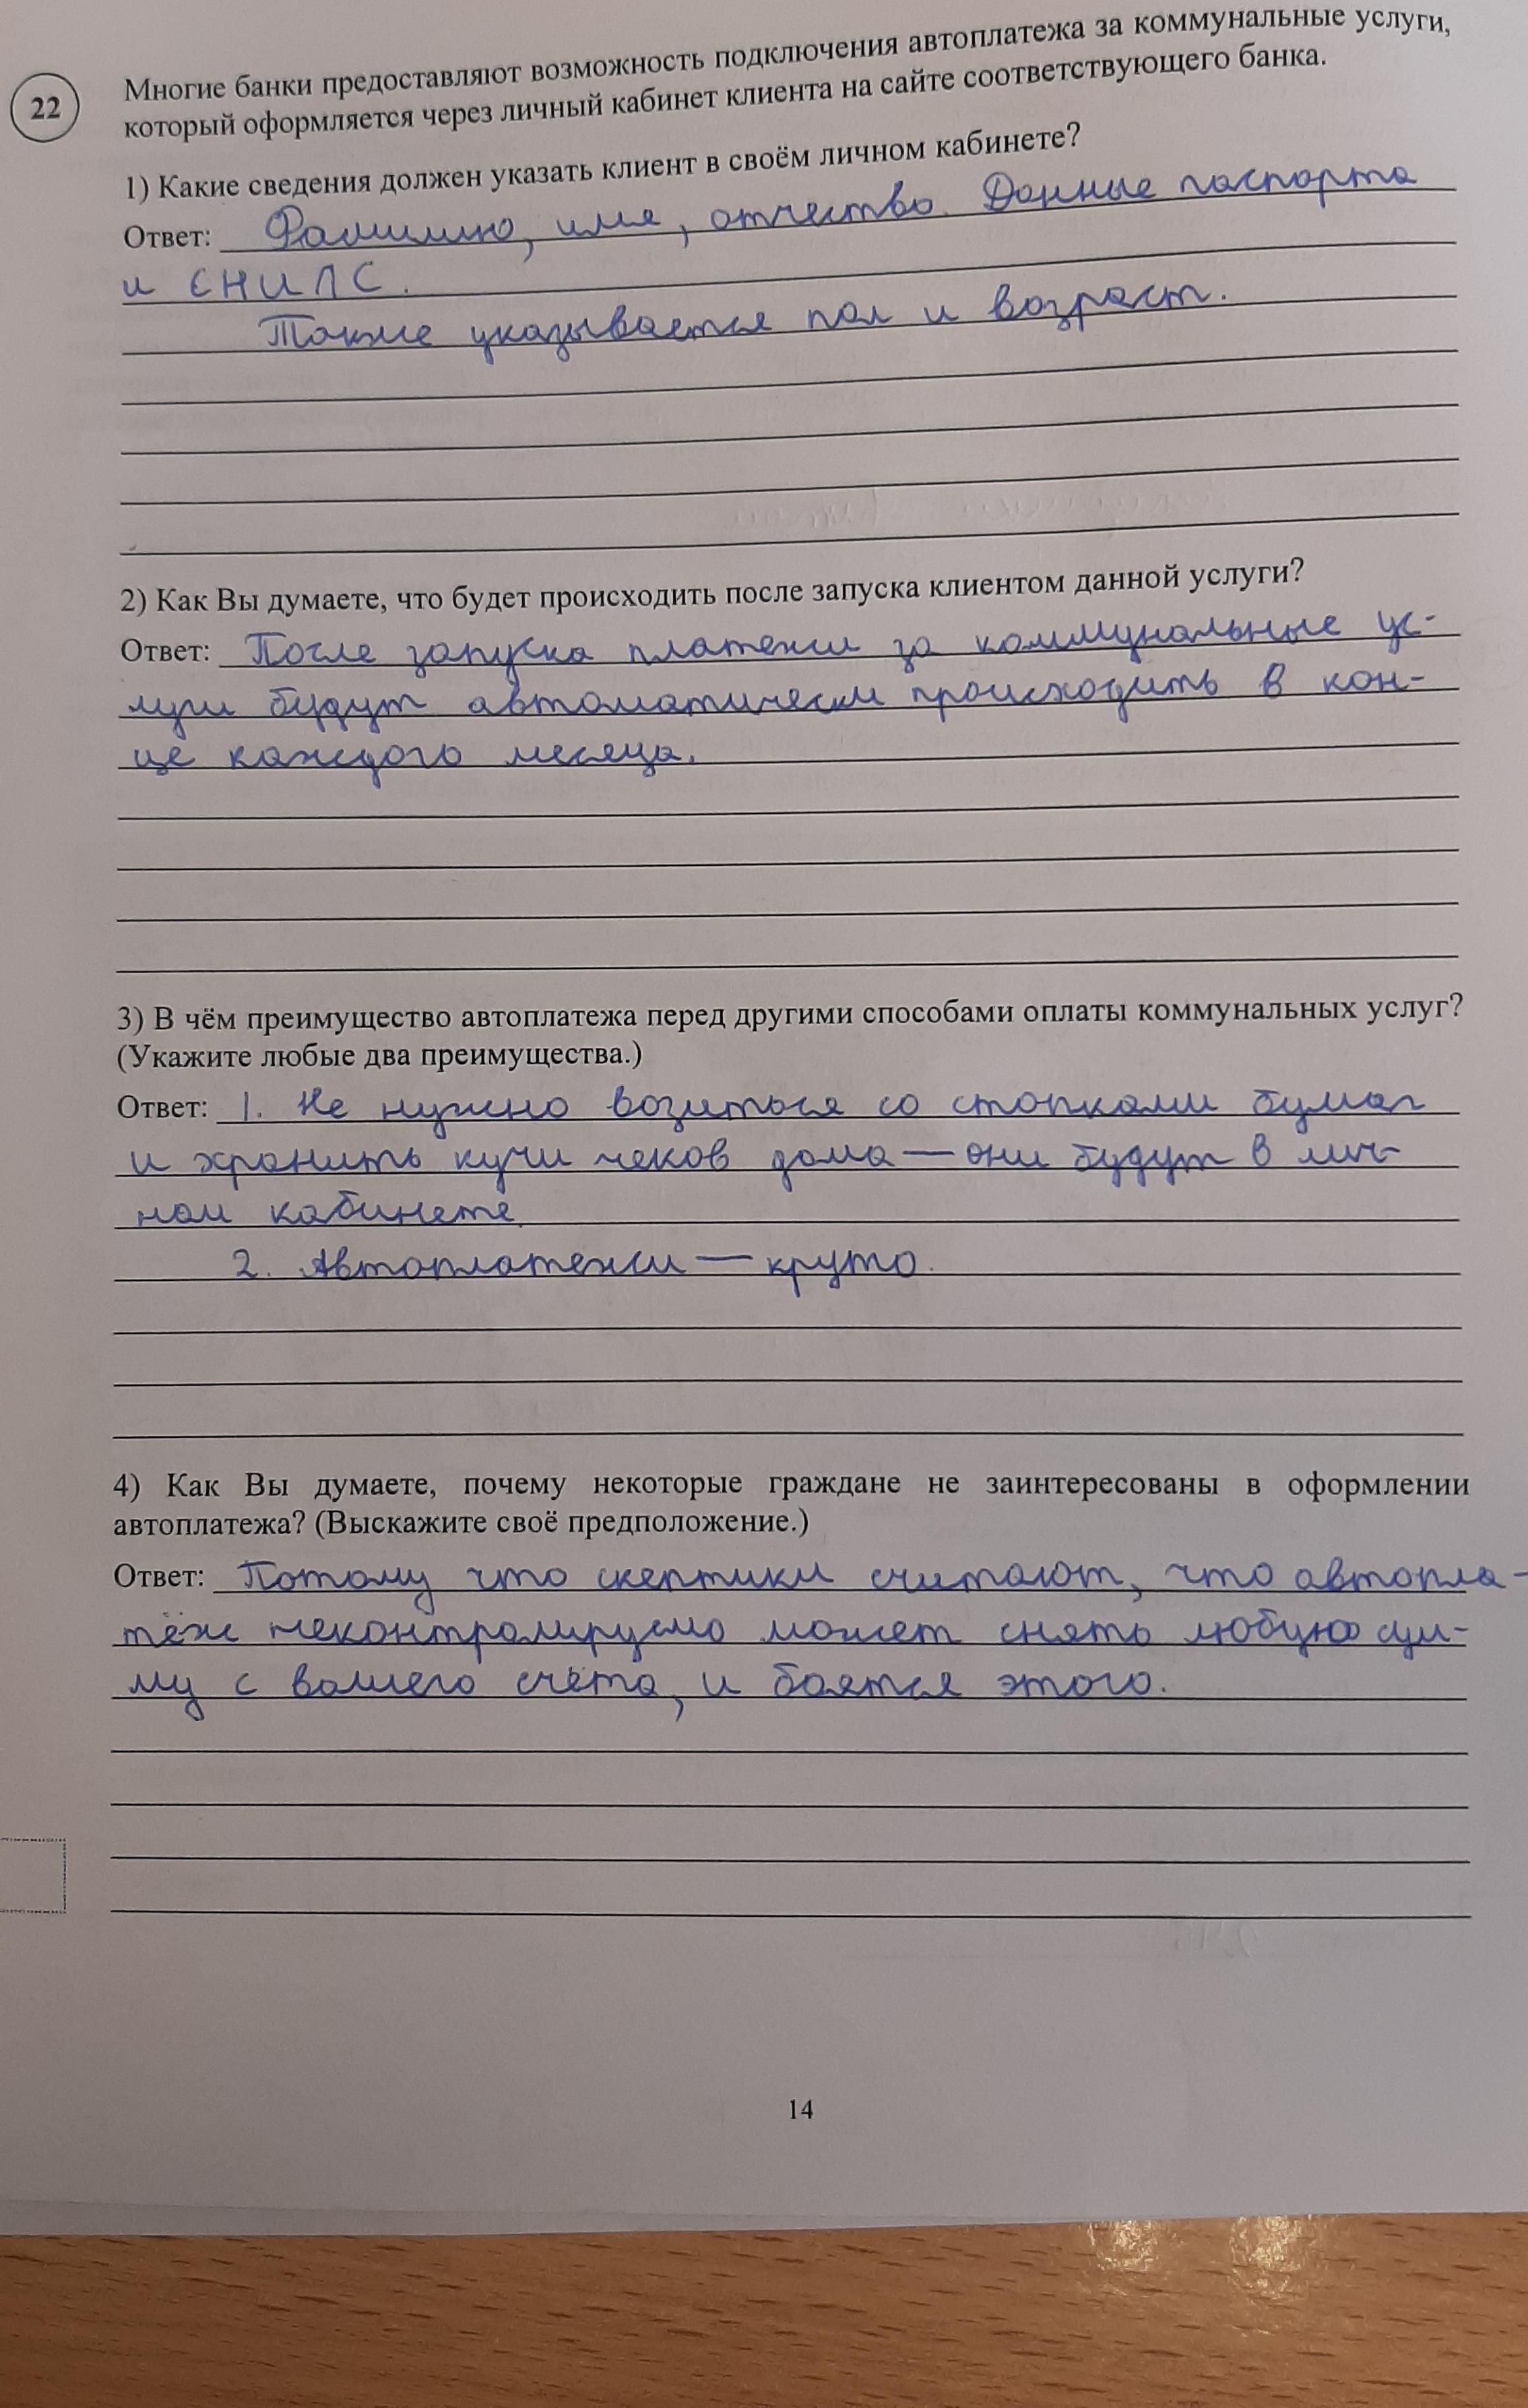 22
Многие банки предоставляют возможность подключения автоплатежа за коммунальные услуги,
который оформляется через личный кабинет клиента на сайте соответствующего банка.
1) Какие сведения должен указать клиент в своём личном кабинете?
Ответ: Фамилию, имя, отчество. Данные паспорта
и СНИЛС.
Также указывается пол и возраст.
2) Как Вы думаете, что будет происходить после запуска клиентом данной услуги?
Ответ: После запуска платежи за коммунальные ус-
луги будут автоматически происходить в кон-
це каждого месяца.
3) В чём преимущество автоплатежа перед другими способами оплаты коммунальных услуг?
(Укажите любые два преимущества.)
Ответ: 1. Не нужно возиться со стопками бумаг
и хранить кучи чеков дома — они будут в лич-
ном кабинете.
2. Автоплатежи — круто.
4) Как Вы думаете, почему некоторые граждане не заинтересованы в оформлении
автоплатежа? (Выскажите своё предположение.)
Ответ: Потому что скептики считают, что автопла-
тёж неконтролируемо может снять любую сум-
му с вашего счёта, и боятся этого.
14